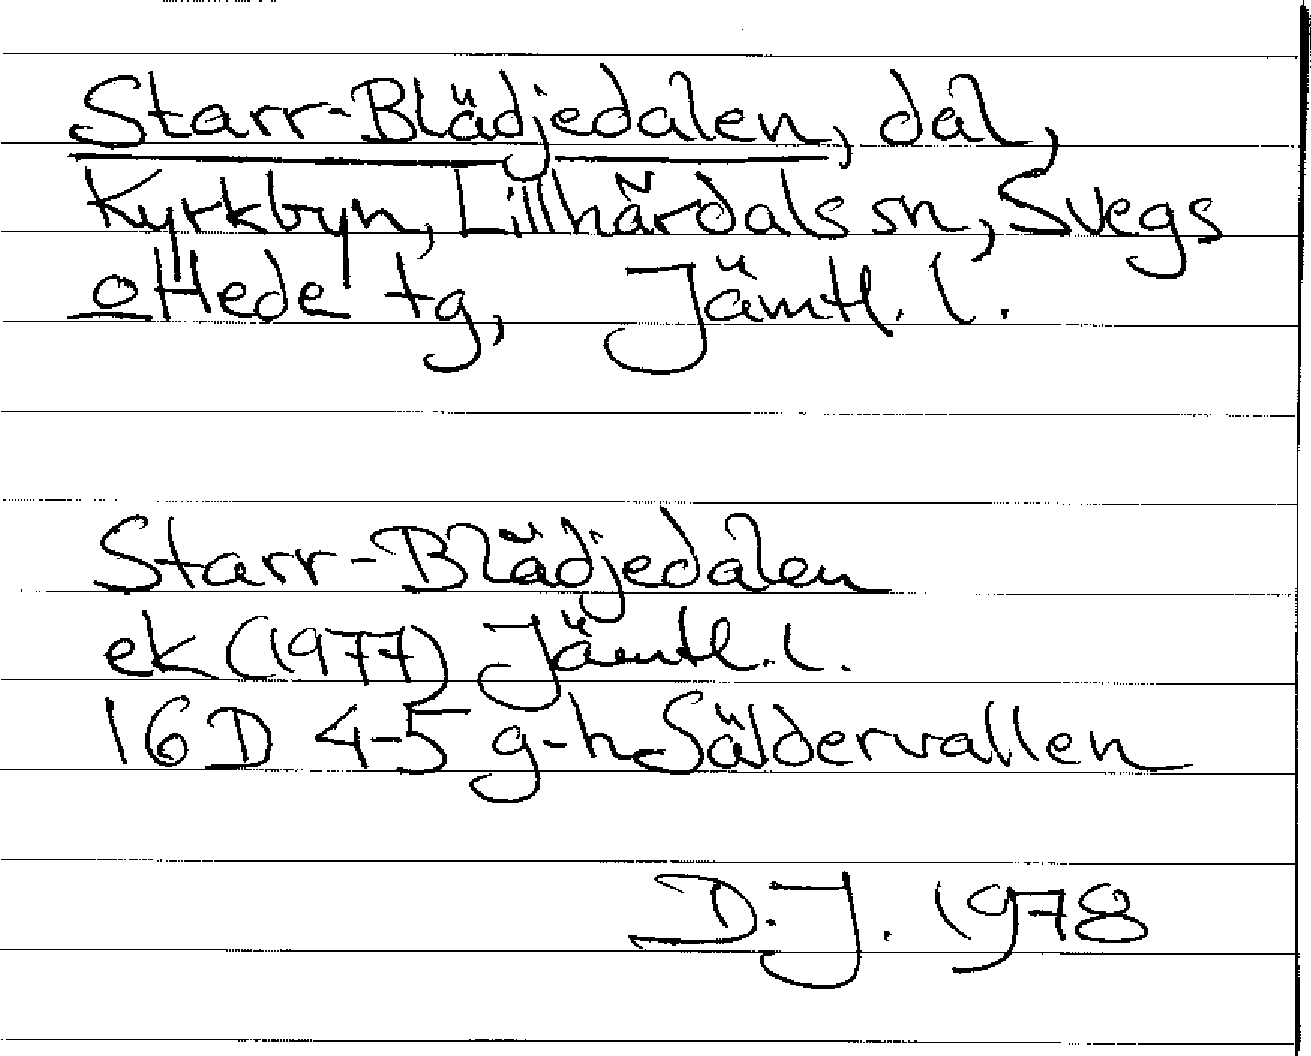 Starr-Blädjedalen, dal,
Kyrkbyn, Lillhärdals sn, Svegs
o Hede tg, Jämtl. l.
Starr-Blädjedalen
ek (1977) Jämtl. l.
16 D 4-5 g-h Säldervallen
D.J. 1978